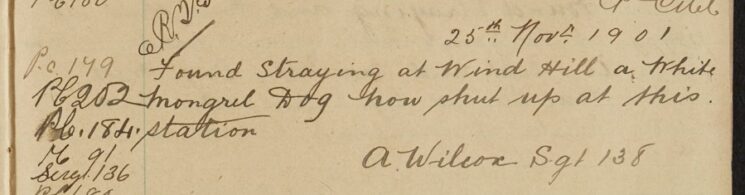 25th Novr 1901
P.C. 149 Found Straying at Wind Hill a White
PC 202 Mongrel Dog now shut up at this.
P.C. 184. station
91
Sergt. 136 A. Wilcox Sgt 138